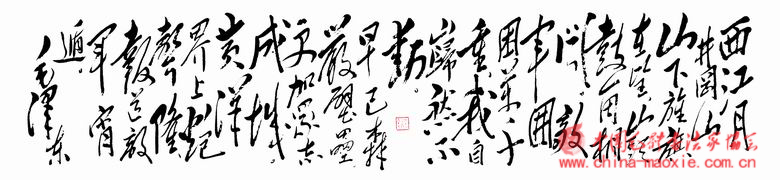 西江月
井岡山
山下旌旗
在望山头
鼓角相
闻敌
军围
困万千
重我自
岿然不
動
早已森
嚴壁壘
更加眾志
成城
黄洋
界上炮
聲隆
報道敵
軍宵
遁
毛澤东
www.china-maoxie.com.cn